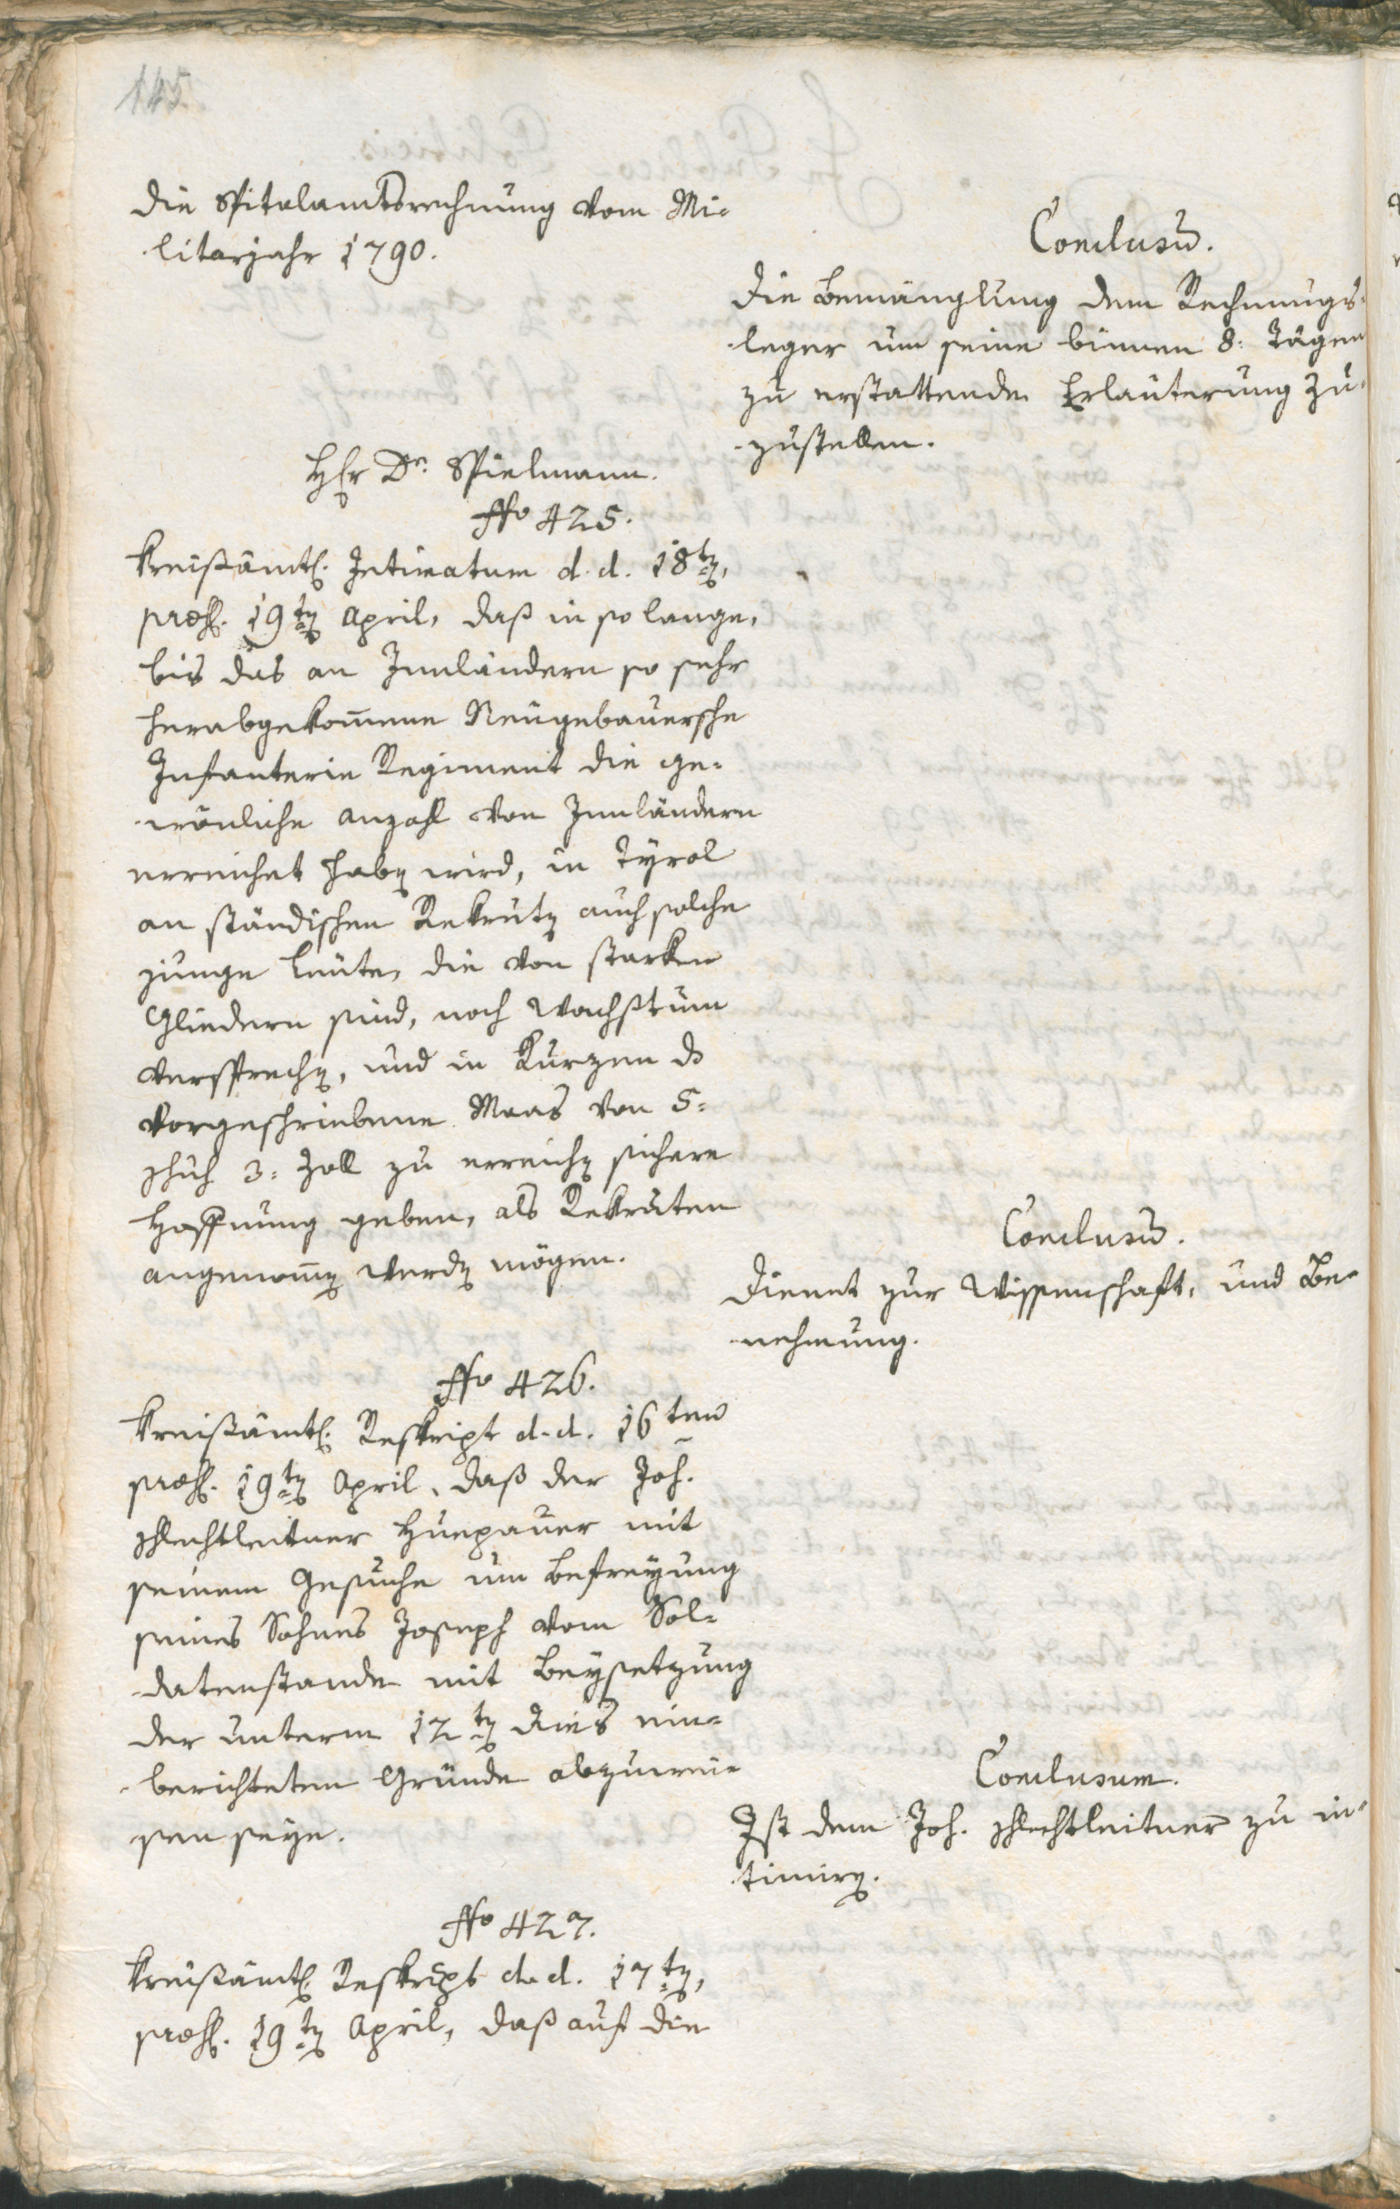 145
die Spitalamtsrechnung vom Mi-
litarjahr 1790.
Conclusum.
Die Bemänglung dem Rechnungs-
leger um seine binnen 8: Tägen
zu erstattende Erläuterung zu-
zustellen.
Hr Dr. Spielmann.
No 425.
Kreißämtl. Intimatum d. d. 18ten,
præs. 19ten April, daß in so lange,
bis das an Innländern so sehr
herabgekommene Neugebauersche
Infanterie Regiment die ge-
wönliche Anzahl von Innländern
erreichet haben wird, in Tyrol
an ständischen Rekruten auch solche
junge Leute, die von starken
Gliedern sind, noch Wachsthum
versprechen, und in Kurzen die
vorgeschriebene Maas von 5:
Schuh 3: Zoll zu erreichen sichere
Hoffnung geben, als Rekruten
angenommen werden mögen.
Conclusum.
Dienet zur Wissenschaft, und Be-
nehmung.
No 426.
Kreißämtl. Reskript d. d. 16ten
præs. 19ten April, daß der Joh.
Schlechtleitner Huepauer mit
seinem Gesuche um Befreyung
seines Sohnes Joseph vom Sol-
datenstande mit Beysetzung
der unterm 12ten dies ein-
berichteten Gründe abzuwei-
sen seye.
Conclusum.
Ist dem Joh. Schlechtleitner zu in-
timiren.
No 427.
Kreißämtl. Reskript d. d. 17ten,
præs. 19ten April, daß auf die